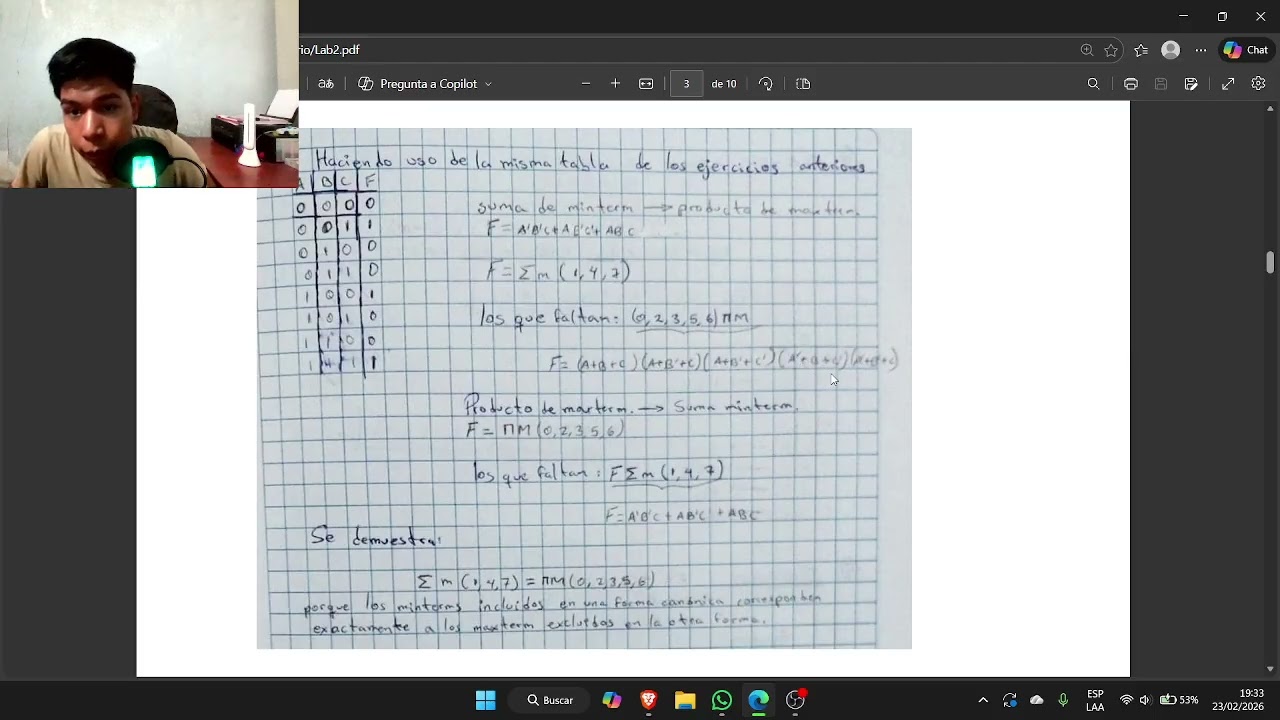 io/Lab2.pdf
Chat
Pregunta a Copilot
3 de 10
Haciendo uso de la misma tabla de los ejercicios anteriores
A B C F
0 0 0 0
0 0 1 1
0 1 0 0
0 1 1 0
1 0 0 1
1 0 1 0
1 1 0 0
1 1 1 1
suma de minterm → producto de maxterm.
F = A'B'C + AB'C' + ABC
F = Σm (1,4,7)
los que faltan: (0,2,3,5,6) ΠM
F = (A+B+C) (A+B'+C) (A+B'+C') (A'+B+C')
Producto de maxterm. → Suma minterm.
F = ΠM (0,2,3,5,6)
los que faltan: F Σm (1,4,7)
F = A'B'C + AB'C' + ABC
Se demuestra:
Σm (1,4,7) = ΠM (0,2,3,5,6)
porque los minterms incluidos en una forma canónica corresponden
exactamente a los maxterm excluidos en la otra forma.
Buscar
ESP
LAA
53%
19:33
23/02/2026